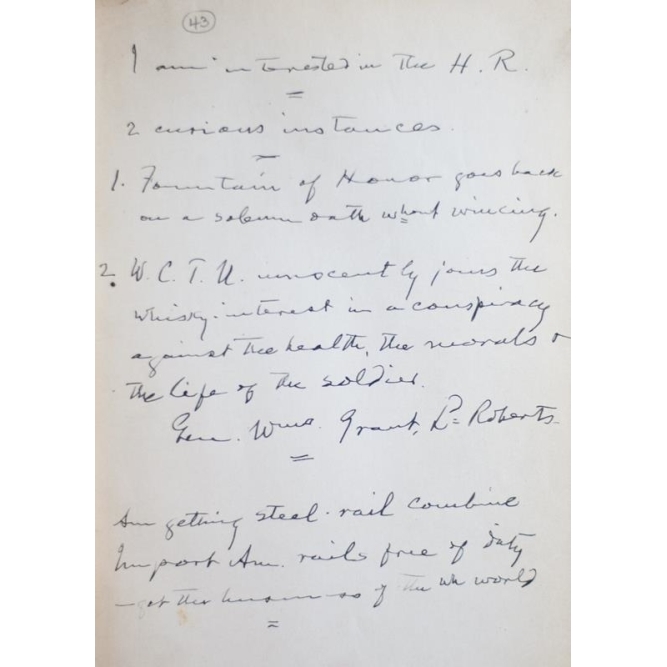 43
I am interested in the H. R.
2 curious instances.
1. Fountain of Honor goes back
on a solemn oath whout wincing.
2. W. C. T. U. innocently joins the
whisky-interest in a conspiracy
against the health, the morals &
the life of the soldier.
Gen. Wms. Grant, Ld Roberts
Am getting steel-rail combine
Import Am. rails free of duty
—get the business of the wh world